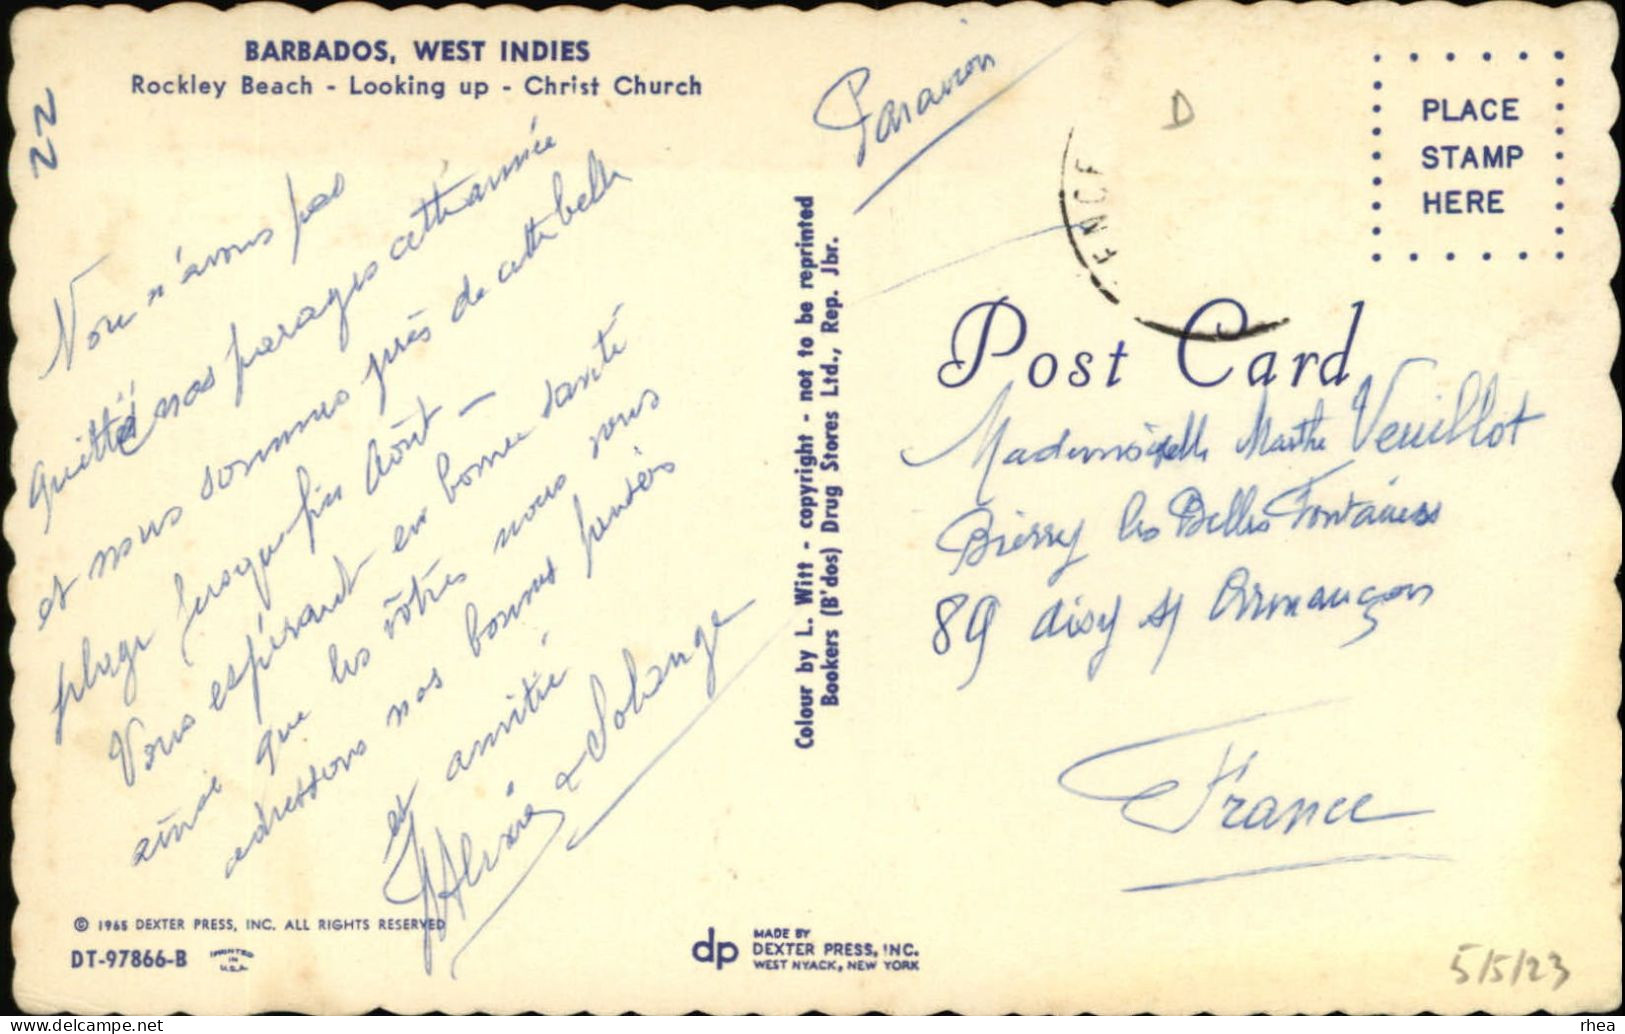 BARBADOS, WEST INDIES
Rockley Beach - Looking up - Christ Church
22
n'avons pas
quitté nos parages cette année
et nous sommes près de cette belle
plage jusqu'fin Août -
Vous espérant en bonne santé
ainsi que les vôtres nous vous
adressons nos bonnes pensées
et amitié
& Solange
© 1965 DEXTER PRESS, INC. ALL RIGHTS RESERVED
DT-97866-B
PRINTED
IN
U.S.A.
Colour by L. Witt - copyright - not to be reprinted
Bookers (B'dos) Drug Stores Ltd., Rep. Jbr.
dp
MADE BY
DEXTER PRESS, INC.
WEST NYACK, NEW YORK
Par avion
D
PLACE
STAMP
HERE
Post Card
Mademoiselle Marthe Veuillot
Bierry les Belles Fontaines
89 Aisy s/ Armançon
France
5/5/23
rhea